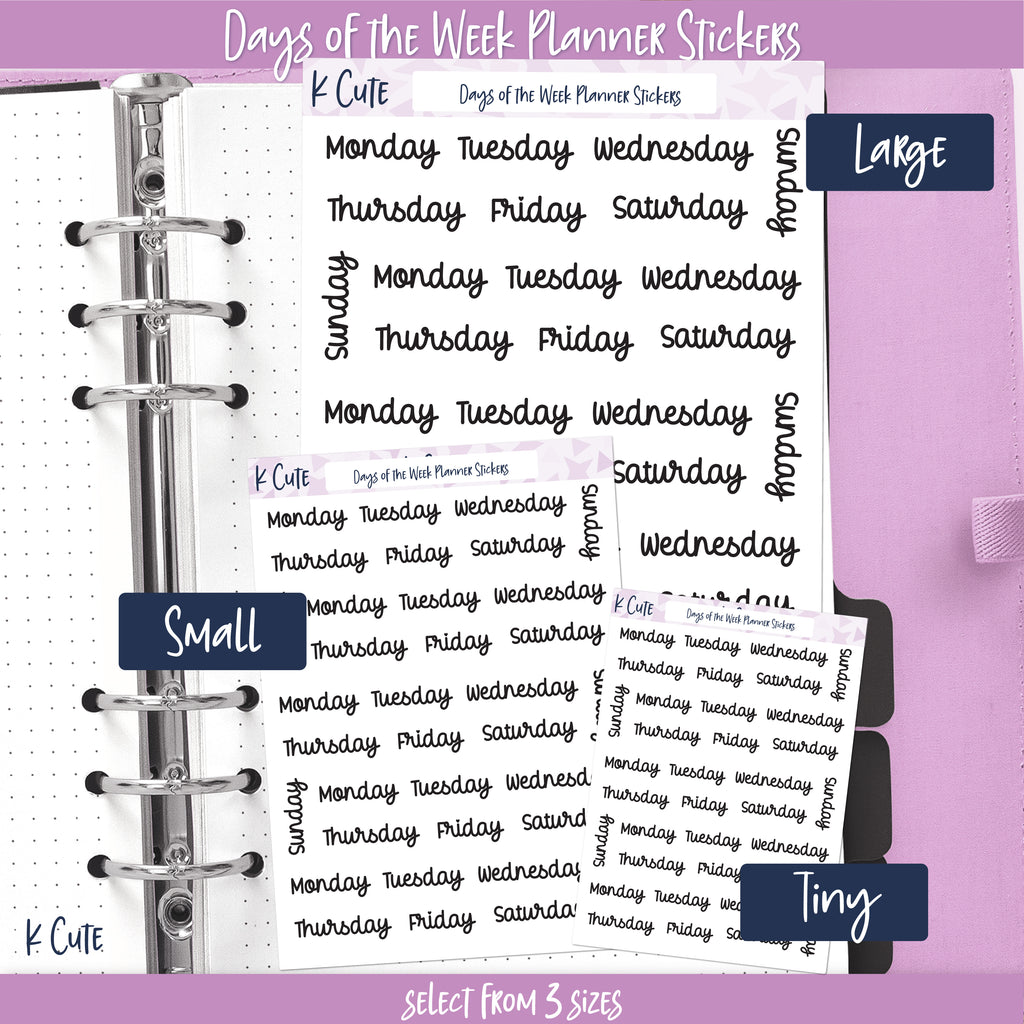 Days of the Week Planner Stickers
K Cute
Days of the Week Planner Stickers
Monday Tuesday Wednesday
Sunday
Thursday Friday Saturday
Monday Tuesday Wednesday
Sunday
Thursday Friday Saturday
Monday Tuesday Wednesday
Sunday
Saturday
Wednesday
Saturday
Large
K Cute
Days of the Week Planner Stickers
Monday Tuesday Wednesday
Sunday
Thursday Friday Saturday
Monday Tuesday Wednesday
Thursday Friday Saturday
Monday Tuesday Wednesday
Thursday Friday Saturday
Monday Tuesday Wednesd
Sunday
Thursday Friday Saturd
Monday Tuesday Wednesday
Thursday Friday Saturday
Small
K Cute
Days of the Week Planner Stickers
Monday Tuesday Wednesday
Sunday
Thursday Friday Saturday
Monday Tuesday Wednesday
Sunday
Thursday Friday Saturday
Monday Tuesday Wednesday
Sunday
Thursday Friday Saturday
Monday Tuesday Wednesday
Sunday
Thursday Friday
Monday Tuesday We
Thursday Friday Sa
Tiny
K Cute
Select from 3 sizes